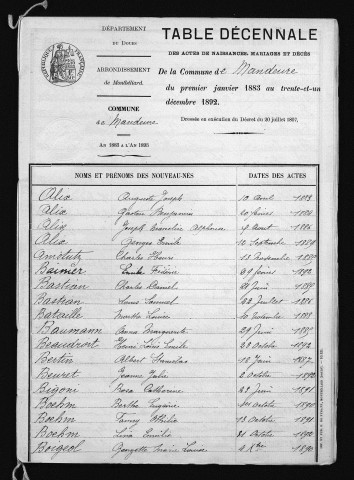 DÉPARTEMENT
DU DOUBS
ARRONDISSEMENT
de Montbéliard.
COMMUNE
de Mandeure
AN 1883 à L'AN 1892
TABLE DÉCENNALE
DES ACTES DE NAISSANCES, MARIAGES ET DÉCÈS
De la Commune de Mandeure
du premier janvier 1883 au trente-et-un
décembre 1892.
Dressée en exécution du Décret du 20 juillet 1807.
NOMS ET PRÉNOMS DES NOUVEAU-NÉS DATES DES ACTES
Alix Auguste Joseph 10 Avril
Alix Gaston Benjamin 20 février
Alix Joseph Alphonse 9 Août 1886
Alix Georges Emile 12 Septembre 1889
Charles Henri 13 Novembre
Bainier 29 février 1892
Bastian Charles Daniel Juin
Bastian Louis Samuel 22 Juillet 1886
Bataille Louise 10 Novembre 1888
Baumann Anna Marguerite 29 Juin
Henri Louis Emile 23 Octobre 1892
Bertin Albert Stanislas 12 Juin 1887
Beuret Jeanne 2 Octobre
Bigoni Rosa Catherine 23 Juin 1891
Boehm Berthe Eugénie Octobre
Boehm Fanny 13 Octobre 1891
Boehm Lina Emilie 31 Octobre 1892
Georgette Marie Louise 4 Xbre 1890